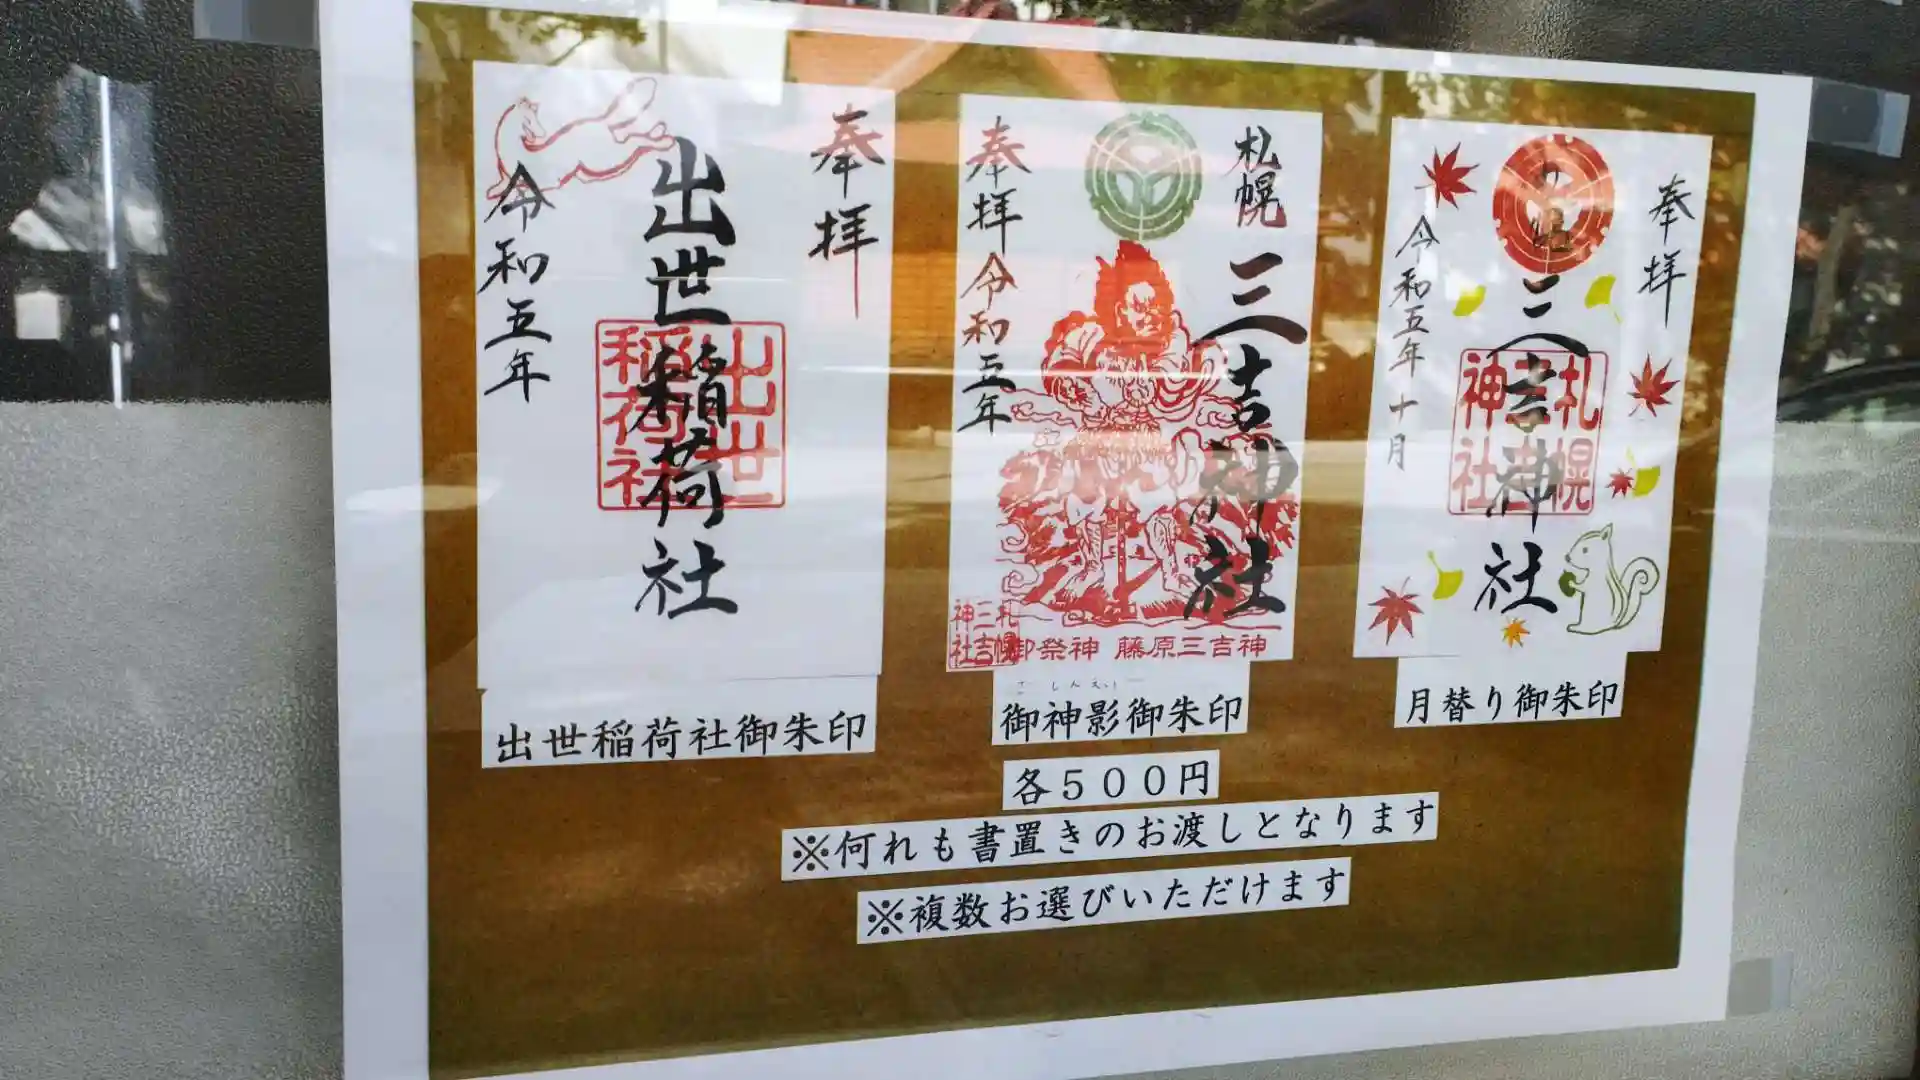 奉拝
出世稲荷社
出世
稲荷社
令和五年
出世稲荷社御朱印
札幌
三吉神社
奉拝 令和五年
札幌
三吉
神社
御祭神 藤原三吉神
ごしんえい
御神影御朱印
奉拝
札幌
三吉神社
札幌
三吉
神社
令和五年十月
月替り御朱印
各500円
※何れも書置きのお渡しとなります
※複数お選びいただけます